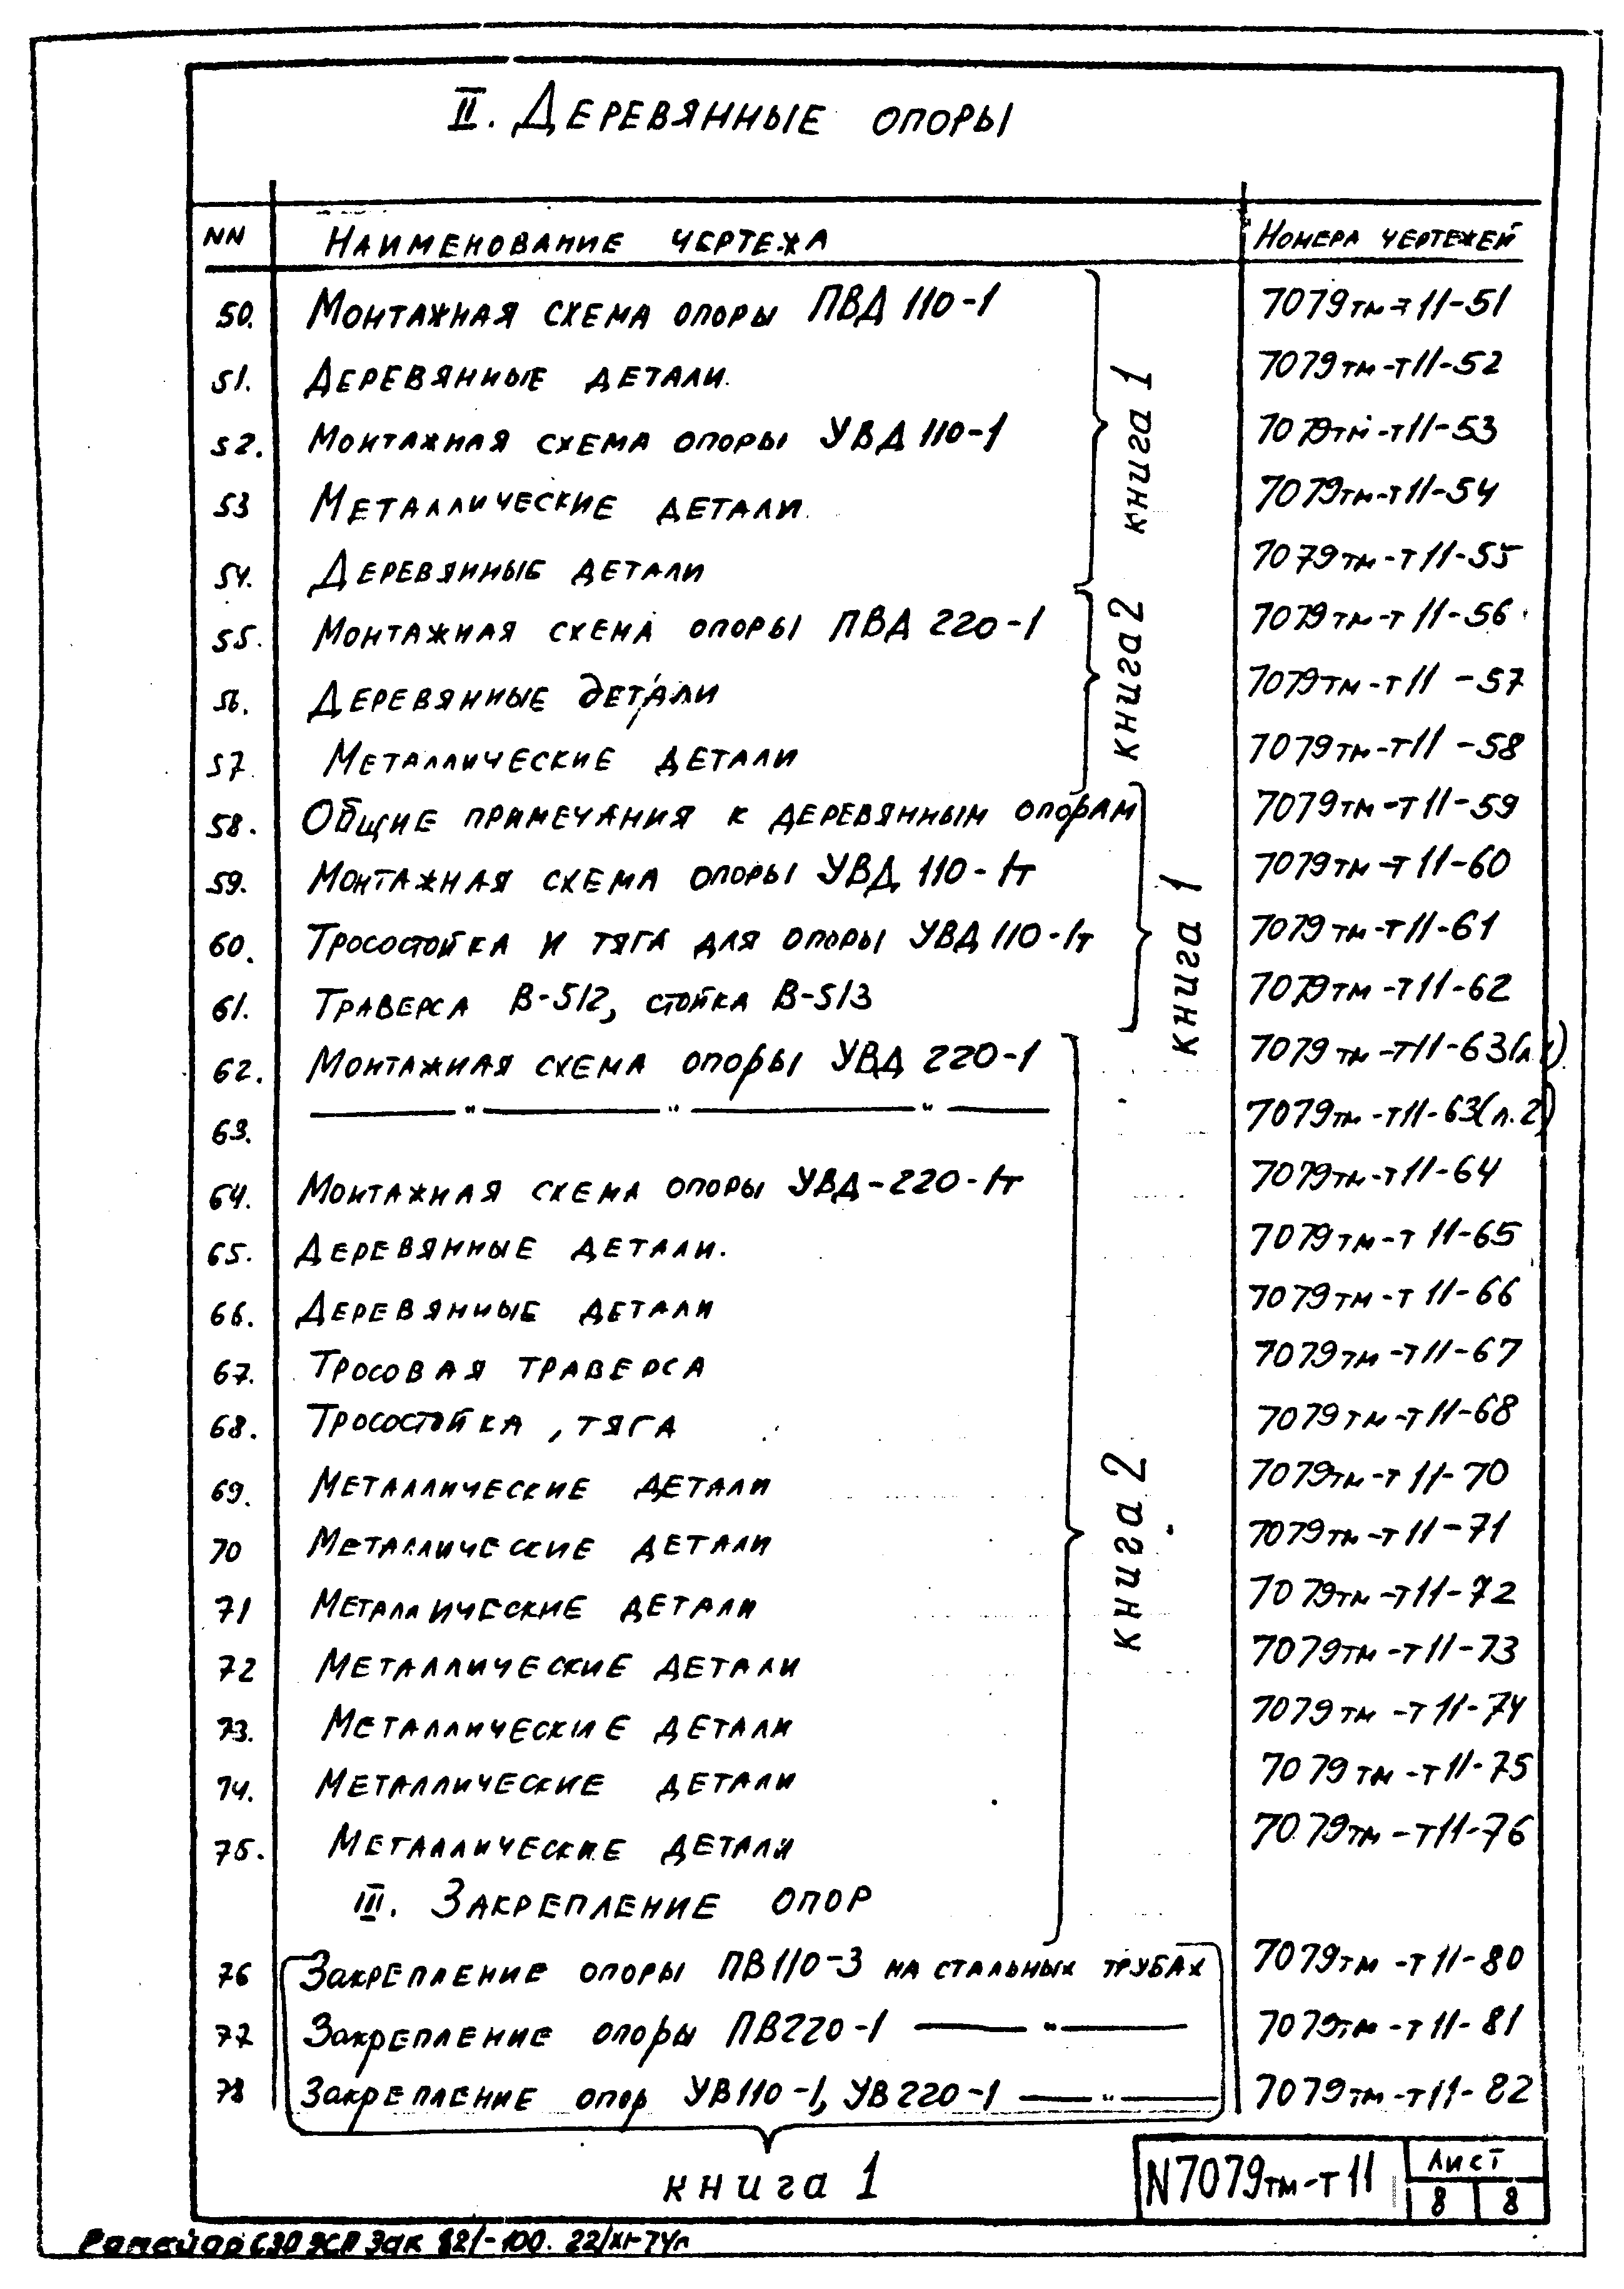 II. Деревянные опоры
NN Наименование чертежа Номера чертежей
50. Монтажная схема опоры ПВД 110-1 7079тм-т11-51
51. Деревянные детали. 7079тм-т11-52
52. Монтажная схема опоры УВД 110-1 7079тм-т11-53
53 Металлические детали. 7079тм-т11-54
54. Деревянные детали 7079тм-т11-55
книга 1
55. Монтажная схема опоры ПВД 220-1 7079тм-т11-56
56. Деревянные детали 7079тм-т11-57
57. Металлические детали 7079тм-т11-58
книга 2
58. Общие примечания к деревянным опорам 7079тм-т11-59
59. Монтажная схема опоры УВД 110-1т 7079тм-т11-60
60. Тросостойка и тяга для опоры УВД 110-1т 7079тм-т11-61
61. Траверса В-512, стойка В-513 7079тм-т11-62
книга 1
62. Монтажная схема опоры УВД 220-1 7079тм-т11-63(л.1)
63. —"—"—"— 7079тм-т11-63(л.2)
64. Монтажная схема опоры УВД-220-1т 7079тм-т11-64
65. Деревянные детали. 7079тм-т11-65
66. Деревянные детали 7079тм-т11-66
67. Тросовая траверса 7079тм-т11-67
68. Тросостойка, тяга 7079тм-т11-68
69. Металлические детали 7079тм-т11-70
70 Металлические детали 7079тм-т11-71
71 Металлические детали 7079тм-т11-72
72 Металлические детали 7079тм-т11-73
73. Металлические детали 7079тм-т11-74
74. Металлические детали 7079тм-т11-75
75. Металлические детали 7079тм-т11-76
книга 2
III. Закрепление опор
76 Закрепление опоры ПВ110-3 на стальных трубах 7079тм-т11-80
77 Закрепление опоры ПВ220-1 —"— 7079тм-т11-81
78 Закрепление опор УВ110-1, УВ220-1 —"— 7079тм-т11-82
книга 1
N7079тм-т11
Лист
8 8
СЗО ЭСП Зак 821-100. 22/XI-74г